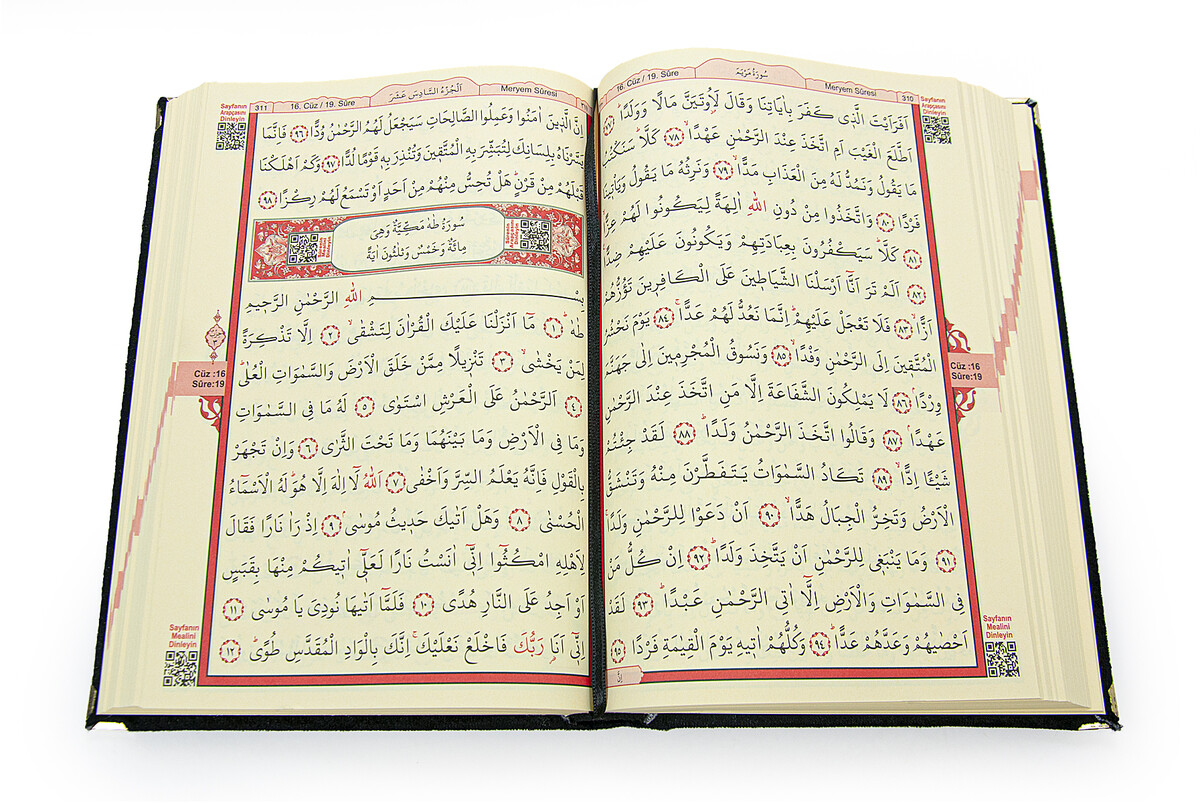 16. Cüz / 19. Sûre
سُورَةُ مَرْيَمَ
Meryem Sûresi
310
Sayfanın
Arapçasını
Dinleyin
اَفَرَاَيْتَ الَّذٖي كَفَرَ بِاٰيَاتِنَا وَقَالَ لَاُوتَيَنَّ مَالًا وَوَلَدًاؕ ﴿٧٧﴾
اَطَّلَعَ الْغَيْبَ اَمِ اتَّخَذَ عِنْدَ الرَّحْمٰنِ عَهْدًاۙ ﴿٧٨﴾ كَلَّاؕ سَنَكْتُبُ
مَا يَقُولُ وَنَمُدُّ لَهُ مِنَ الْعَذَابِ مَدًّاۙ ﴿٧٩﴾ وَنَرِثُهُ مَا يَقُولُ وَيَأْتٖينَا
فَرْدًا ﴿٨٠﴾ وَاتَّخَذُوا مِنْ دُونِ اللّٰهِ اٰلِهَةً لِيَكُونُوا لَهُمْ عِزًّاۙ
﴿٨١﴾ كَلَّاؕ سَيَكْفُرُونَ بِعِبَادَتِهِمْ وَيَكُونُونَ عَلَيْهِمْ ضِدًّا
﴿٨٢﴾ اَلَمْ تَرَ اَنَّٓا اَرْسَلْنَا الشَّيَاطٖينَ عَلَى الْكَافِرٖينَ تَؤُزُّهُمْ
اَزًّاۙ ﴿٨٣﴾ فَلَا تَعْجَلْ عَلَيْهِمْؕ اِنَّمَا نَعُدُّ لَهُمْ عَدًّاۚ ﴿٨٤﴾ يَوْمَ نَحْشُرُ
الْمُتَّقٖينَ اِلَى الرَّحْمٰنِ وَفْدًاۙ ﴿٨٥﴾ وَنَسُوقُ الْمُجْرِمٖينَ اِلٰى جَهَنَّمَ
وِرْدًاۘ ﴿٨٦﴾ لَا يَمْلِكُونَ الشَّفَاعَةَ اِلَّا مَنِ اتَّخَذَ عِنْدَ الرَّحْمٰنِ
عَهْدًاۘ ﴿٨٧﴾ وَقَالُوا اتَّخَذَ الرَّحْمٰنُ وَلَدًاؕ ﴿٨٨﴾ لَقَدْ جِئْتُمْ
شَيْـًٔا اِدًّاۙ ﴿٨٩﴾ تَكَادُ السَّمٰوَاتُ يَتَفَطَّرْنَ مِنْهُ وَتَنْشَقُّ
الْاَرْضُ وَتَخِرُّ الْجِبَالُ هَدًّاۙ ﴿٩٠﴾ اَنْ دَعَوْا لِلرَّحْمٰنِ وَلَدًاۚ
﴿٩١﴾ وَمَا يَنْبَغٖي لِلرَّحْمٰنِ اَنْ يَتَّخِذَ وَلَدًاؕ ﴿٩٢﴾ اِنْ كُلُّ مَنْ
فِي السَّمٰوَاتِ وَالْاَرْضِ اِلَّٓا اٰتِي الرَّحْمٰنِ عَبْدًاؕ ﴿٩٣﴾ لَقَدْ
اَحْصٰيهُمْ وَعَدَّهُمْ عَدًّاؕ ﴿٩٤﴾ وَكُلُّهُمْ اٰتٖيهِ يَوْمَ الْقِيٰمَةِ فَرْدًا ﴿٩٥﴾
اِنَّ
Cüz :16
Sûre:19
Sayfanın
Mealini
Dinleyin
311
16. Cüz / 19. Sûre
اَلْجُزْءُ السَّادِسَ عَشَرَ
Meryem Sûresi
Sayfanın
Arapçasını
Dinleyin
اِنَّ الَّذٖينَ اٰمَنُوا وَعَمِلُوا الصَّالِحَاتِ سَيَجْعَلُ لَهُمُ الرَّحْمٰنُ وُدًّا ﴿٩٦﴾ فَاِنَّمَا
يَسَّرْنَاهُ بِلِسَانِكَ لِتُبَشِّرَ بِهِ الْمُتَّقٖينَ وَتُنْذِرَ بِهٖ قَوْمًا لُدًّا ﴿٩٧﴾ وَكَمْ اَهْلَكْنَا
قَبْلَهُمْ مِنْ قَرْنٍؕ هَلْ تُحِسُّ مِنْهُمْ مِنْ اَحَدٍ اَوْ تَسْمَعُ لَهُمْ رِكْزًا ﴿٩٨﴾
سُورَةُ طٰهٰ مَكِّيَّةٌ وَهِيَ
مِائَةٌ وَخَمْسٌ وَثَلٰثُونَ اٰيَةً
بِسْمِ اللّٰهِ الرَّحْمٰنِ الرَّحٖيمِ
طٰهٰۜ ﴿١﴾ مَٓا اَنْزَلْنَا عَلَيْكَ الْقُرْاٰنَ لِتَشْقٰىۙ ﴿٢﴾ اِلَّا تَذْكِرَةً
لِمَنْ يَخْشٰىۙ ﴿٣﴾ تَنْزٖيلًا مِمَّنْ خَلَقَ الْاَرْضَ وَالسَّمٰوَاتِ الْعُلٰىؕ
﴿٤﴾ اَلرَّحْمٰنُ عَلَى الْعَرْشِ اسْتَوٰى ﴿٥﴾ لَهُ مَا فِي السَّمٰوَاتِ
وَمَا فِي الْاَرْضِ وَمَا بَيْنَهُمَا وَمَا تَحْتَ الثَّرٰى ﴿٦﴾ وَاِنْ تَجْهَرْ
بِالْقَوْلِ فَاِنَّهُ يَعْلَمُ السِّرَّ وَاَخْفٰى ﴿٧﴾ اَللّٰهُ لَٓا اِلٰهَ اِلَّا هُوَؕ لَهُ الْاَسْمَٓاءُ
الْحُسْنٰى ﴿٨﴾ وَهَلْ اَتٰيكَ حَدٖيثُ مُوسٰىۘ ﴿٩﴾ اِذْ رَاٰ نَارًا فَقَالَ
لِاَهْلِهِ امْكُثُٓوا اِنّٖٓي اٰنَسْتُ نَارًا لَعَلّٖٓي اٰتٖيكُمْ مِنْهَا بِقَبَسٍ
اَوْ اَجِدُ عَلَى النَّارِ هُدًى ﴿١٠﴾ فَلَمَّٓا اَتٰيهَا نُودِيَ يَا مُوسٰى ﴿١١﴾
اِنّٖٓي اَنَا۬ رَبُّكَ فَاخْلَعْ نَعْلَيْكَۚ اِنَّكَ بِالْوَادِ الْمُقَدَّسِ طُوًىؕ ﴿١٢﴾
Cüz :16
Sûre:19
Sayfanın
Mealini
Dinleyin